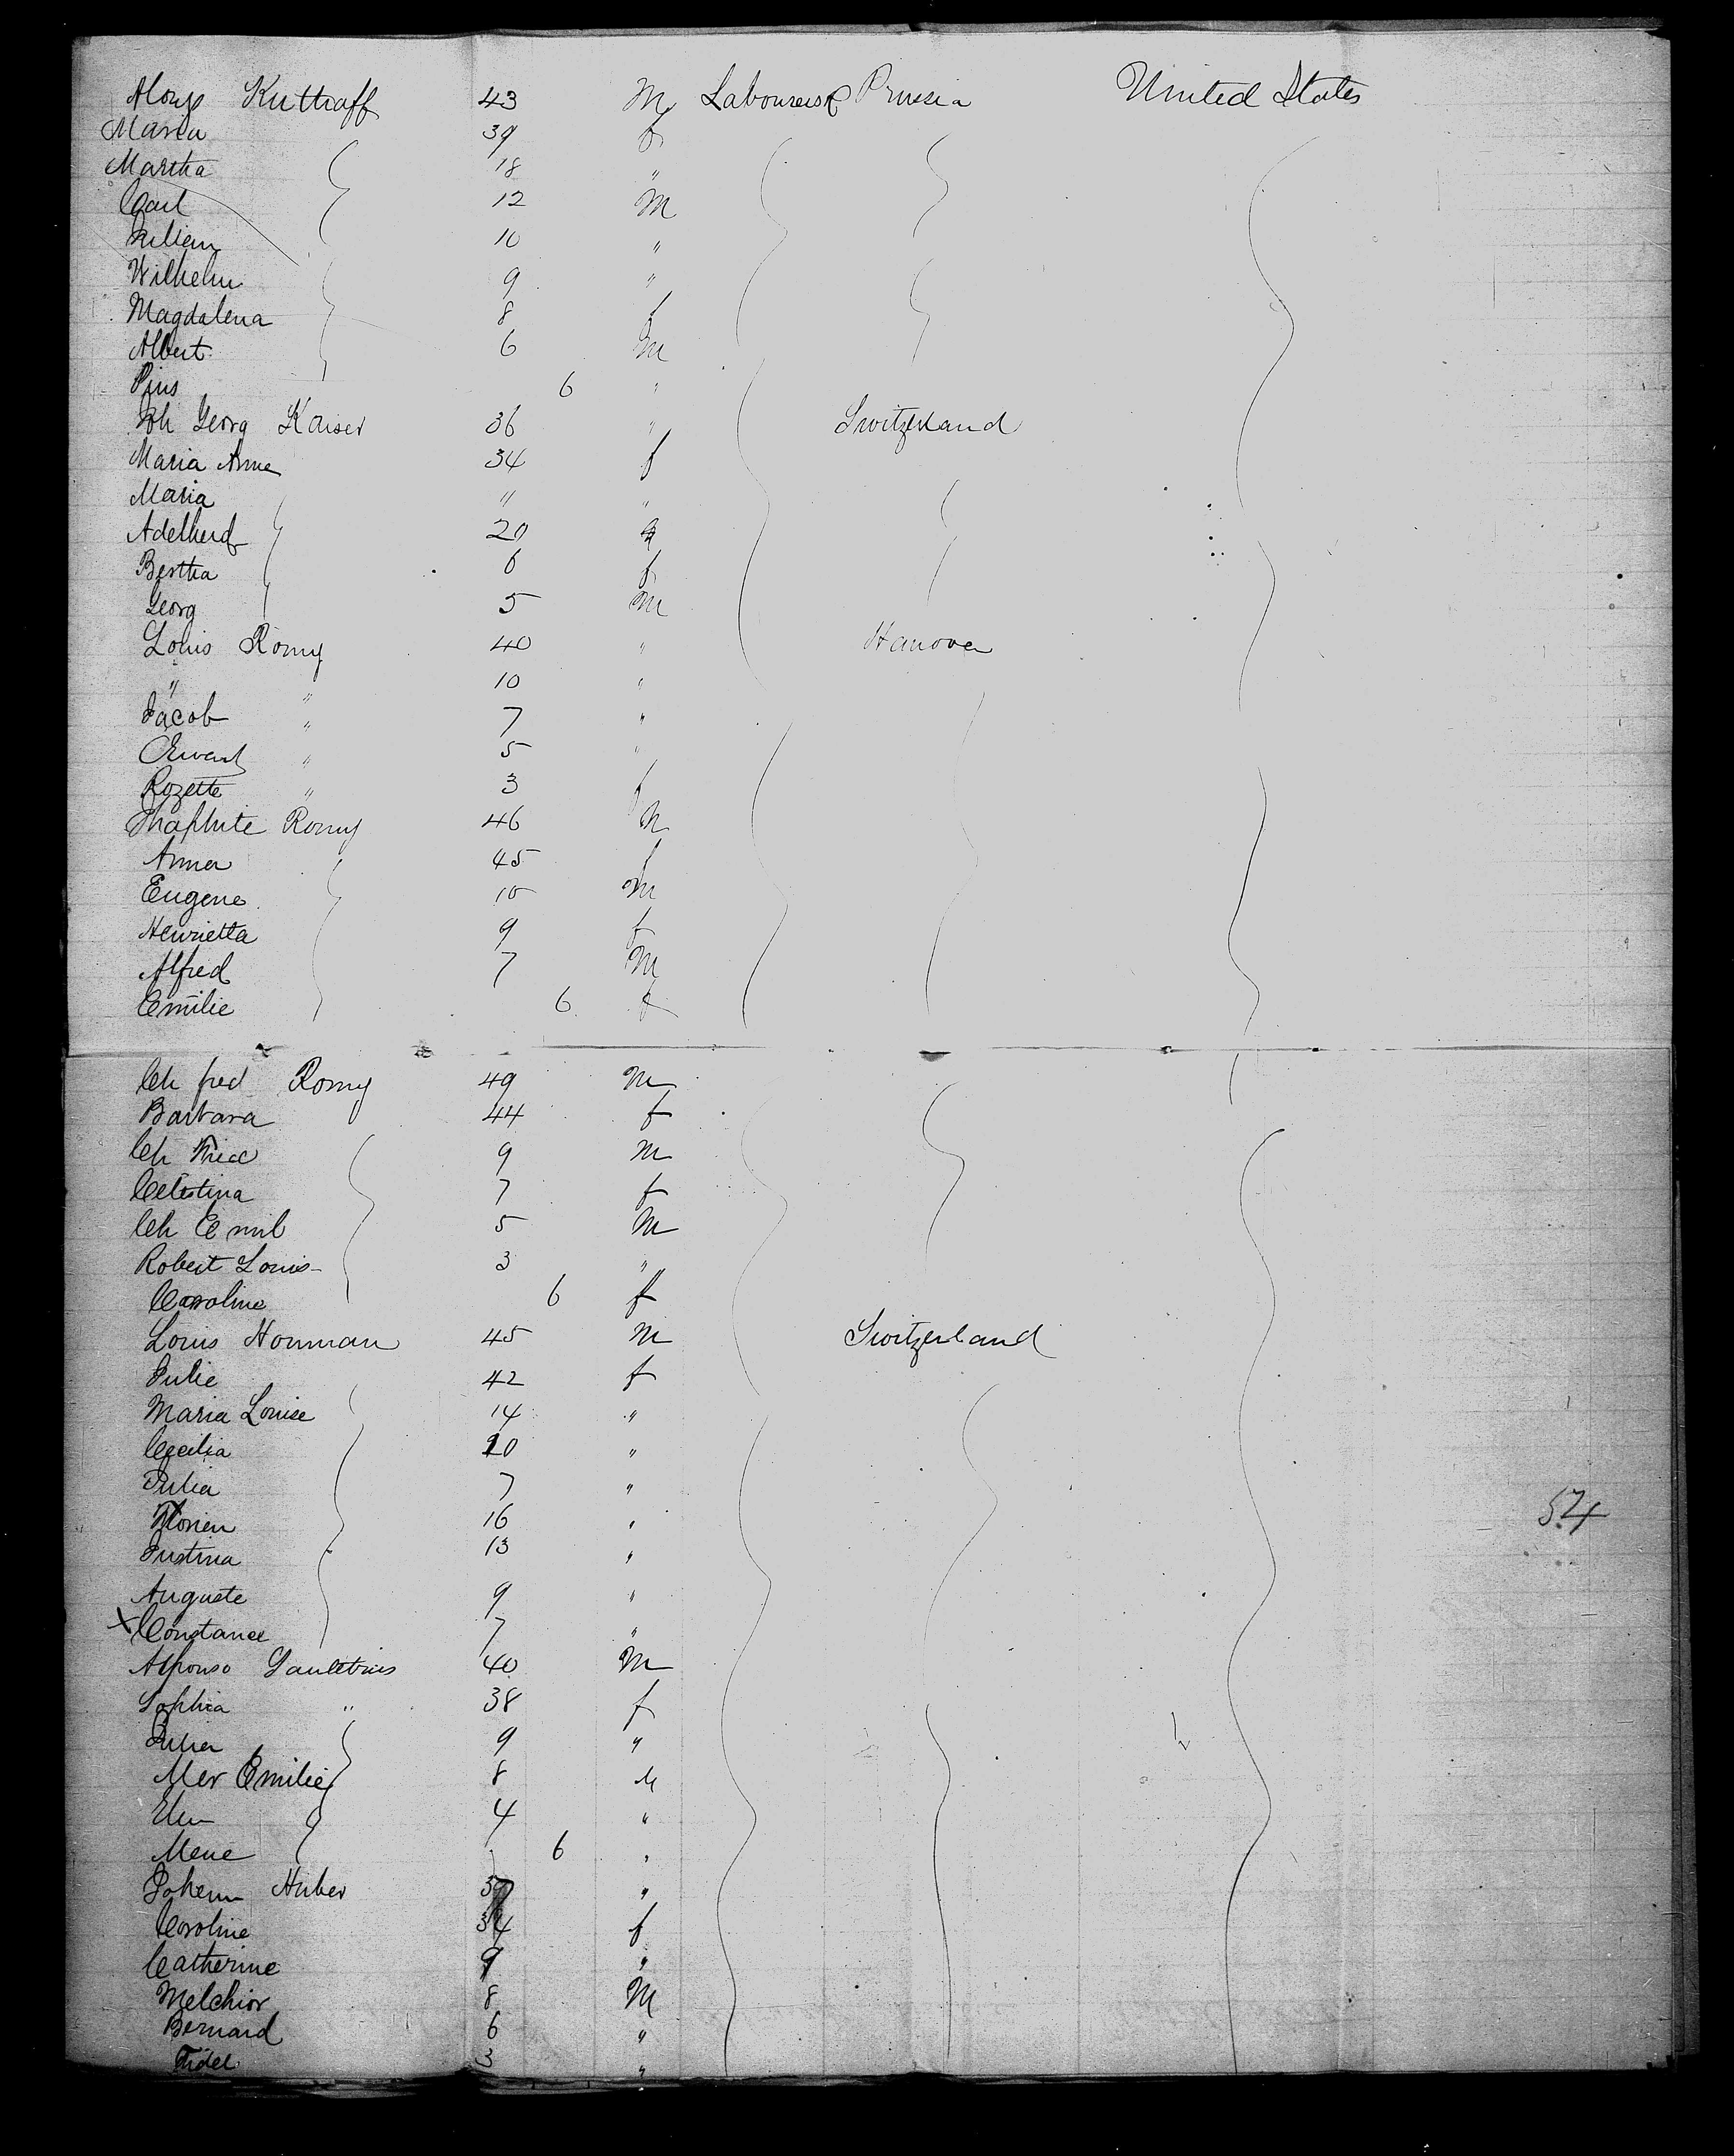 Aloys Kuttraff 43 M Labourers Prussia United States
Maria 39 f
Martha 18 "
Carl 12 M
Julien 10 "
Wilhelm 9 "
Magdalena 8 f
Albert 6 M
Pius 6 "
Joh Georg Kaiser 36 " Switzerland
Maria Anne 34 f
Maria " "
Adelheid 20
Bertha 6 f
Georg 5 M
Louis Romy 40 " Hanover
" " 10 "
Jacob " 7 "
" 5 "
Rozette " 3 f
Romy 46 M
Anna 45 f
Eugene 10 M
Henrietta 9 f
Alfred 7 M
Emilie 6 f
Ch fred Romy 49 M
Barbara 44 f
Ch 9 M
Celestina 7 f
Ch Emil 5 M
Robert Louis 3 "
Caroline 6 f
Louis Houman 45 M Switzerland
Julie 42 f
Maria Louise 14 "
Cecilia 10 "
Julia 7 "
Florien 16 "
Justina 13 "
Auguste 9 "
x Constance 7 "
Alfonso 40 M
Sophia " 38 f
Julia 9 "
Mer Emilie 8 M
4 "
Mene 6 "
54
Johann Huber "
Caroline 34 f
Catherine 9 "
Melchior 8 M
Bernard 6 "
Fidel 3 "